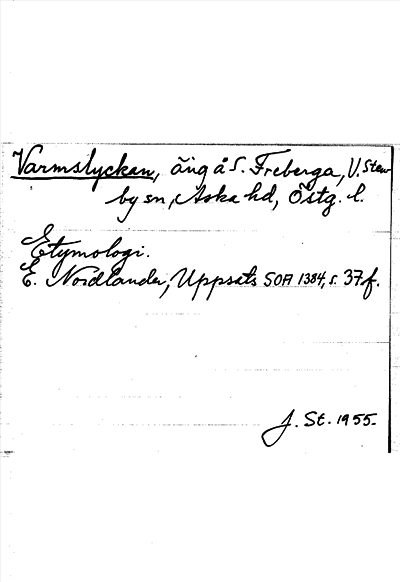 Varmslyckan, äng å S. Freberga, V. Sten-
by sn, Aska hd, Östg. l.
Etymologi.
E. Nordlander, Uppsats SOA 1384, s. 37 f.
J. St. 1955.